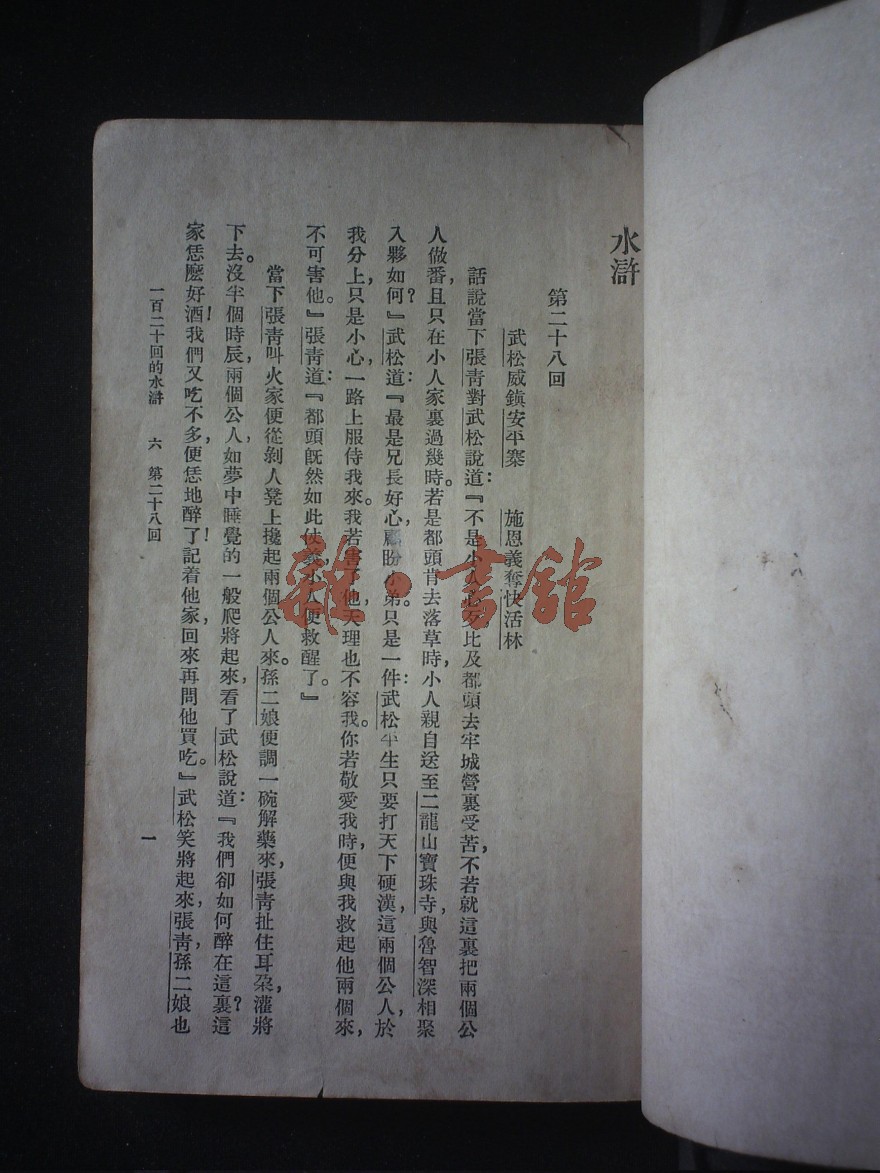 水滸
第二十八回
武松威鎮安平寨 施恩義奪快活林
話說當下張靑對武松說道：『不是小人心歹比及都頭去牢城營裏受苦，不若就這裏把兩個公
人做番，且只在小人家裏過幾時。若是都頭肯去落草時，小人親自送至二龍山寶珠寺，與魯智深相聚
入夥如何？』武松道：『最是兄長好心，顧盼小弟。只是一件：武松平生只要打天下硬漢，這兩個公人，於
我分上，只是小心，一路上服侍我來。我若害了他，天理也不容我。你若敬愛我時，便與我救起他兩個來，
不可害他。』張靑道：『都頭旣然如此仗義，小人便救醒了。』
當下張靑叫火家便從剝人凳上攙起兩個公人來。孫二娘便調一碗解藥來，張靑扯住耳朶，灌將
下去。沒半個時辰，兩個公人，如夢中睡覺的一般爬將起來，看了武松說道：『我們卻如何醉在這裏？這
家恁麼好酒！我們又吃不多，便恁地醉了！記着他家，回來再問他買吃。』武松笑將起來，張靑，孫二娘也
一百二十回的水滸 六 第二十八回 一
雜·書館